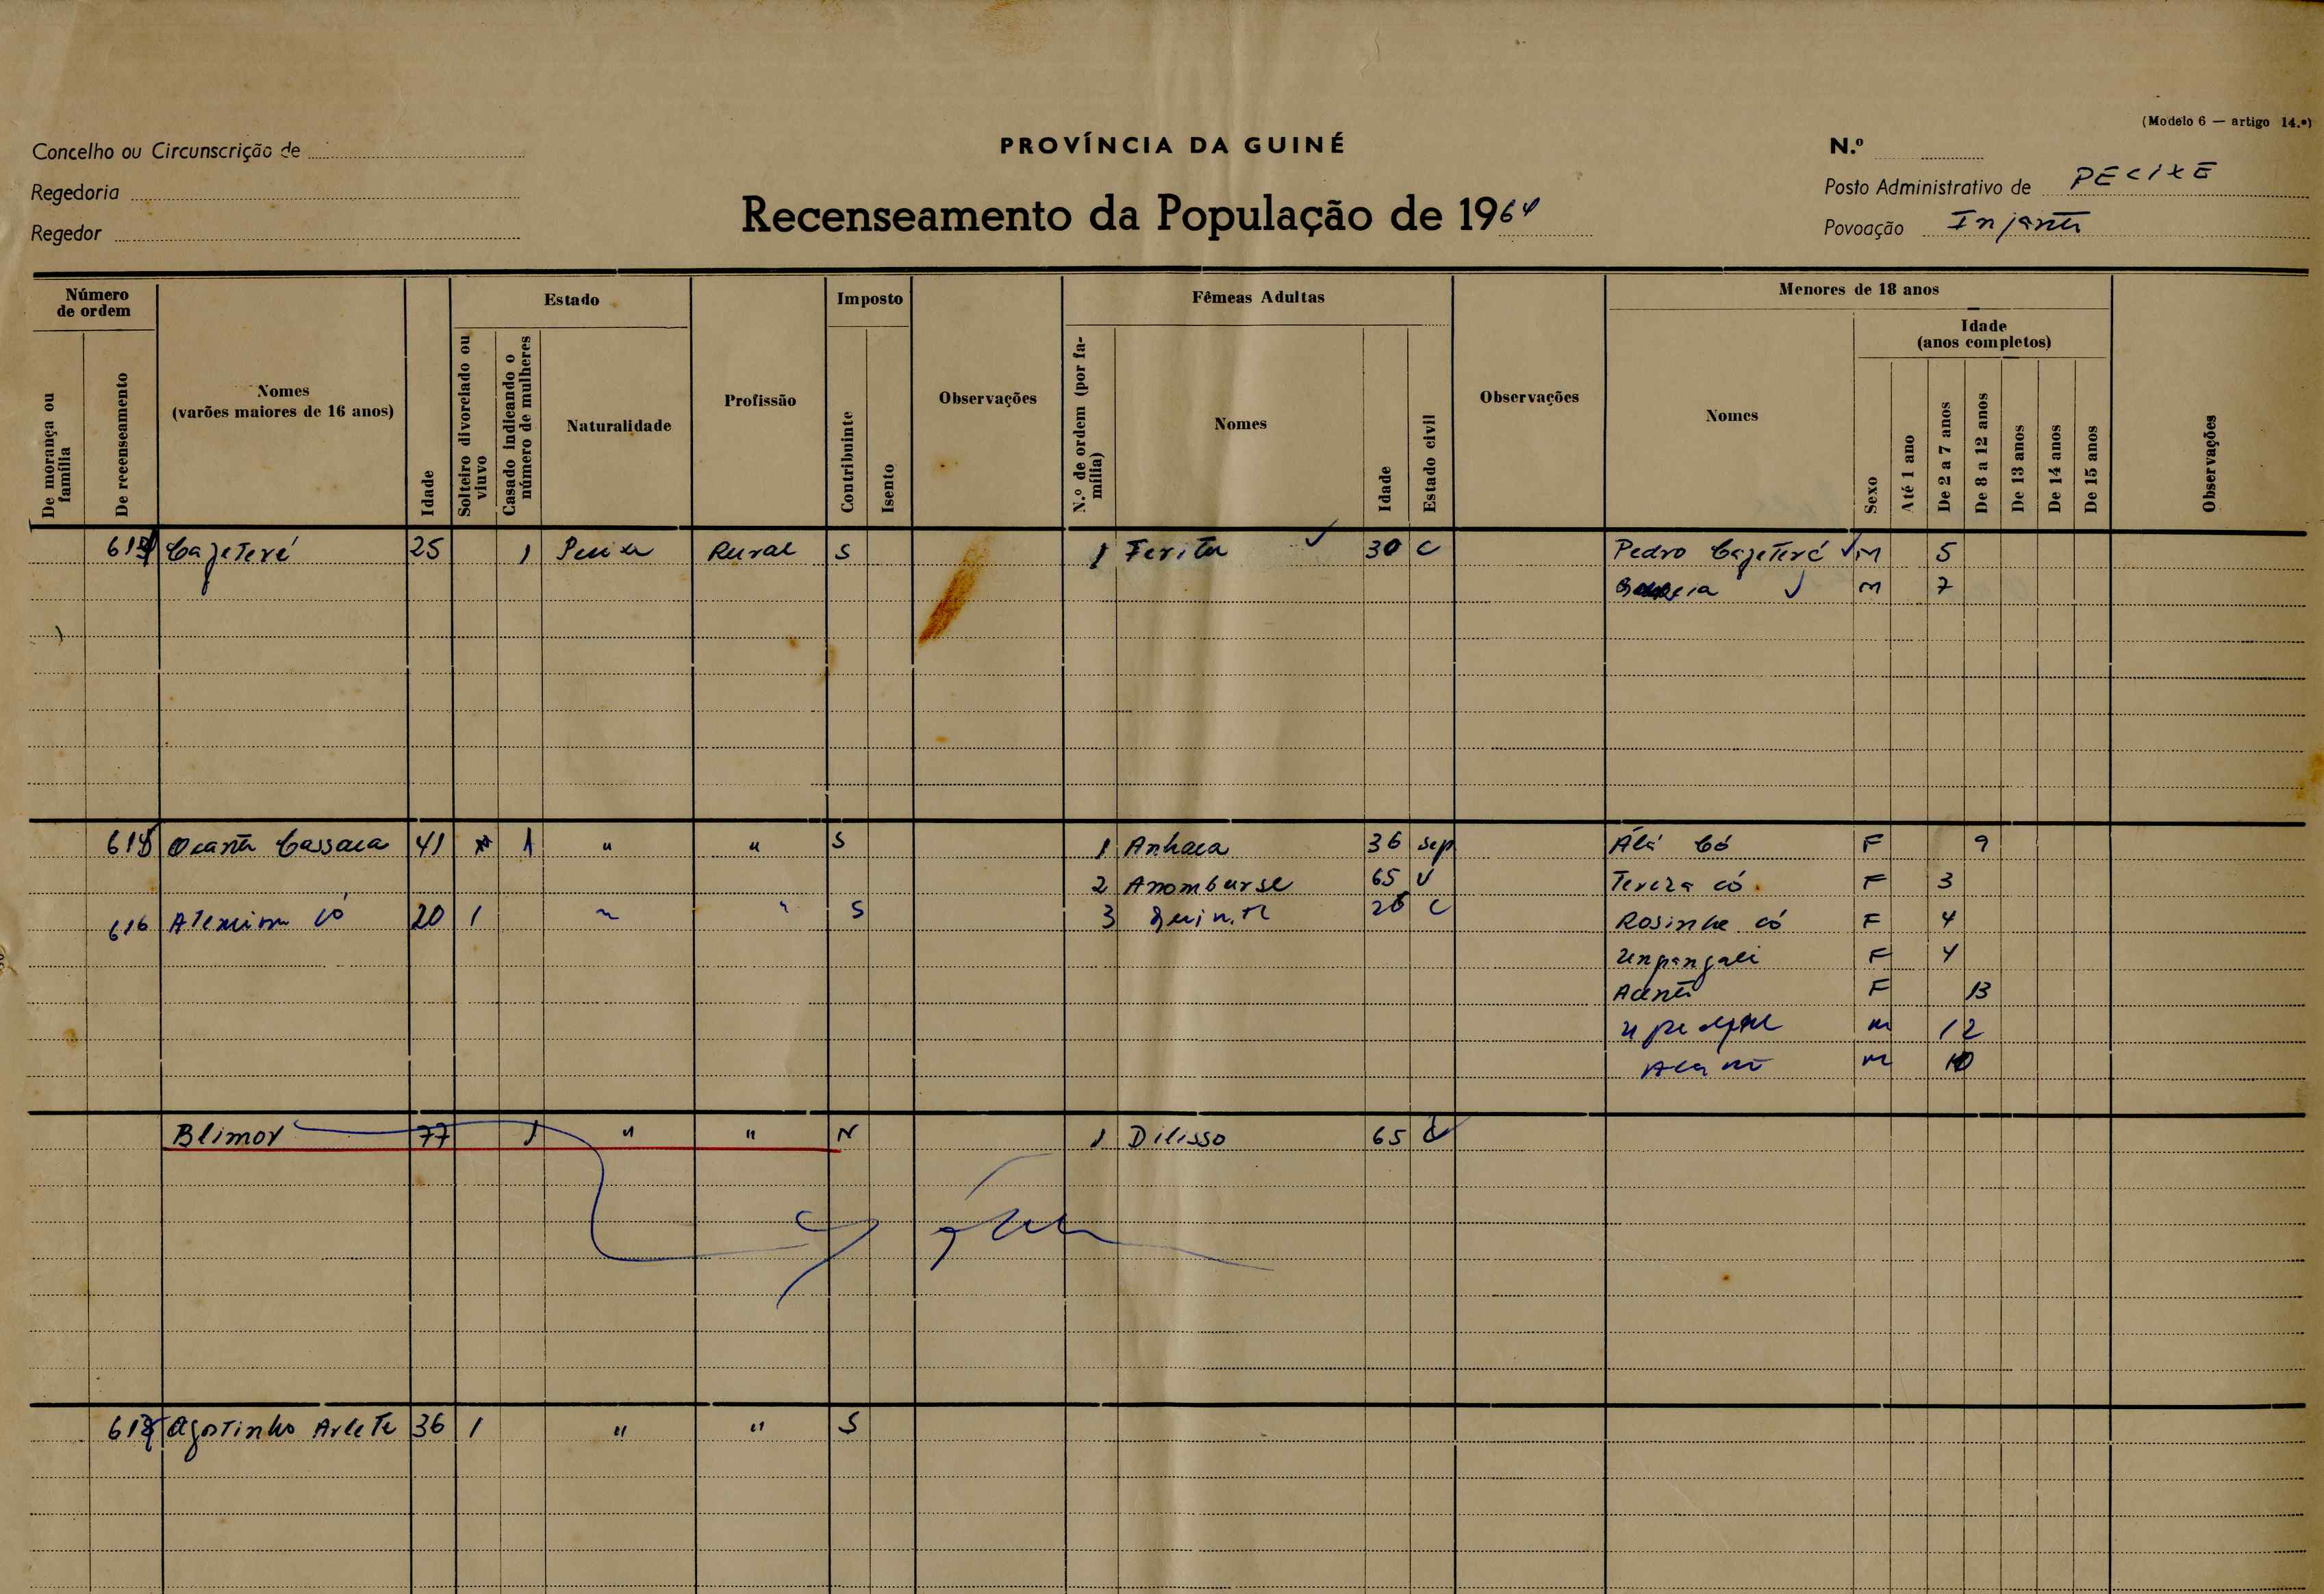 (Modelo 6 — artigo 14.º)
Concelho ou Circunscrição de
PROVÍNCIA DA GUINÉ
N.º
Regedoria
Posto Administrativo de PECIXE
Recenseamento da População de 1964
Regedor
Povoação
Número de ordem
Estado
Imposto
Fêmeas Adultas
Menores de 18 anos
Idade (anos completos)
De morança ou família
De recenseamento
Nomes (varões maiores de 16 anos)
Idade
Solteiro divorciado ou viuvo
Casado indicando o número de mulheres
Naturalidade
Profissão
Contribuinte
Isento
Observações
N.º de ordem (por família)
Nomes
Idade
Estado civil
Observações
Nomes
Sexo
Até 1 ano
De 2 a 7 anos
De 8 a 12 anos
De 13 anos
De 14 anos
De 15 anos
Observações
Cajeteré 25 1 Rural S 1 Ferita 30 C Pedro Cajeteré M 5
M 7
Cassaca 41 1 " " S 1 Anhaca 36 sep Álá Có F 9
2 65 V Tereza có F 3
616 có 20 1 " " S 3 C Rosinha có F 4
F 4
F 13
M 12
M
Blimor 77 1 " " N 1 Dilisso 65
Agostinho Arlete 36 1 " " S